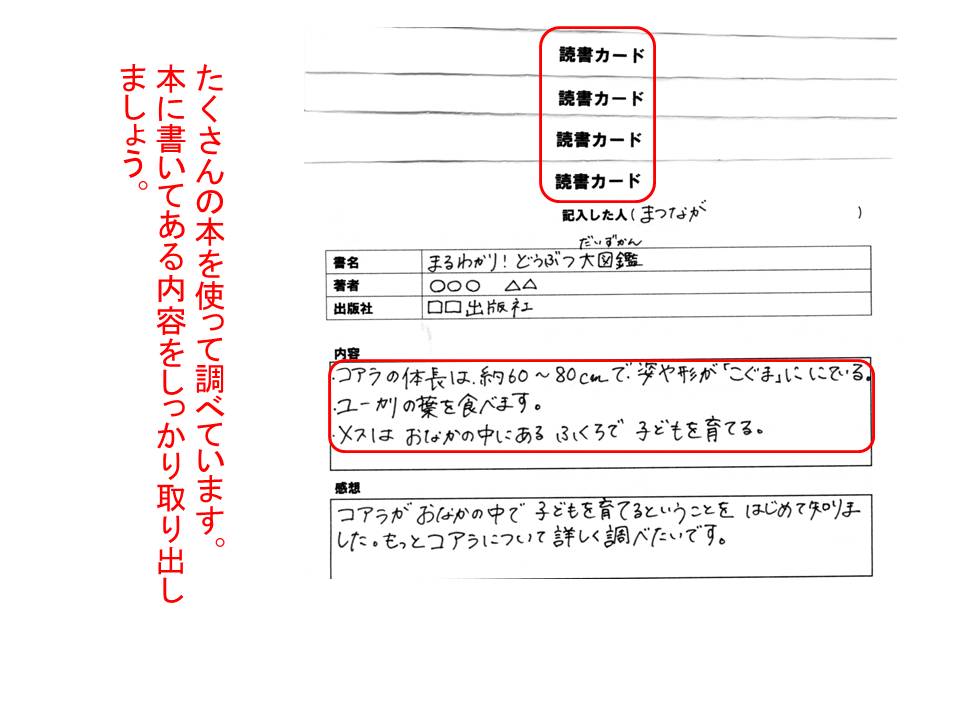 たくさんの本を使って調べています。
本に書いてある内容をしっかり取り出し
ましょう。
読書カード
読書カード
読書カード
読書カード
記入した人(まつなが )
だいずかん
書名 まるわかり!どうぶつ大図鑑
著者 〇〇〇 △△
出版社 □□出版社
内容
・コアラの体長は、約60～80cmで、姿や形が「こぐま」ににている。
・ユーカリの葉を食べます。
・メスは おなかの中にある ふくろで 子どもを育てる。
感想
コアラが おなかの中で 子どもを育てるということを はじめて知りま
した。もっとコアラについて詳しく調べたいです。